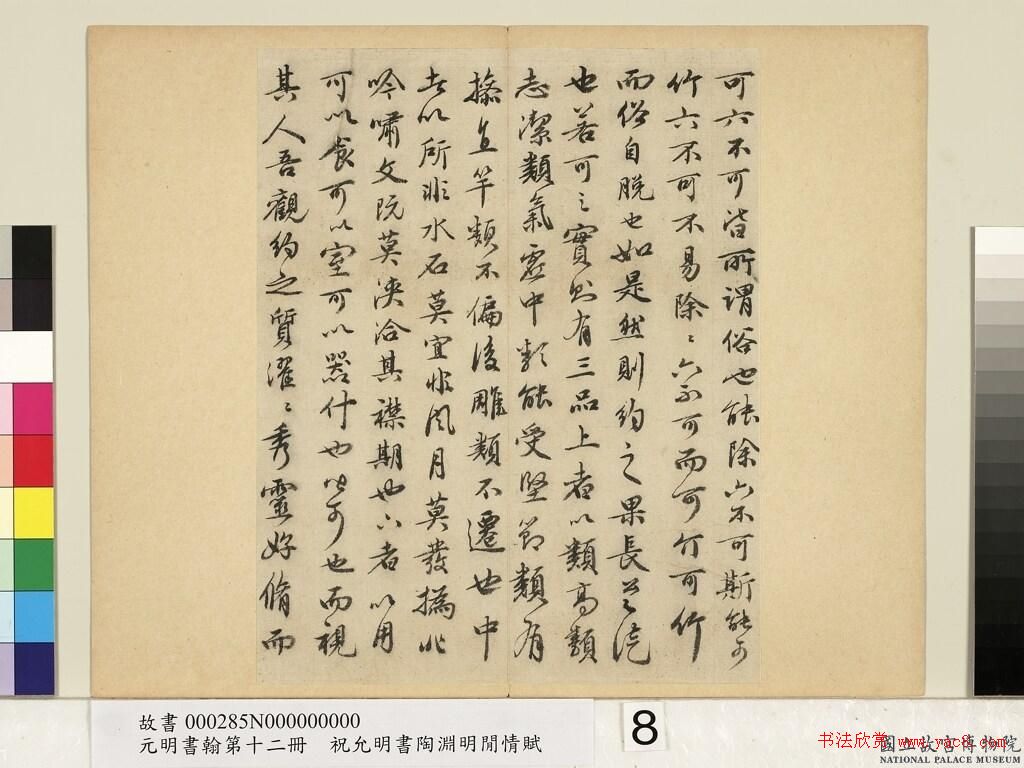 可六不可皆所謂俗也能除六不可斯能可
竹六不可不易除〻六不可而可竹可竹
而俗自脫也如是然則約之果長
也若可之實則有三品上者以類高類
志潔類氣虛中類能受堅節類有
操直竿類不偏後雕類不遷也中
者以所非水石莫宜非風月莫發撝非
吟嘯文阮莫浹洽其襟期也下者以用
可以食可以室可以器什也皆可也而視
其人吾觀約之質濯〻秀靈好脩而
故書 000285N000000000
元明書翰第十二冊 祝允明書陶淵明閒情賦
8
书法欣赏 www.yac8.com
國立故宮博物院
NATIONAL PALACE MUSEUM